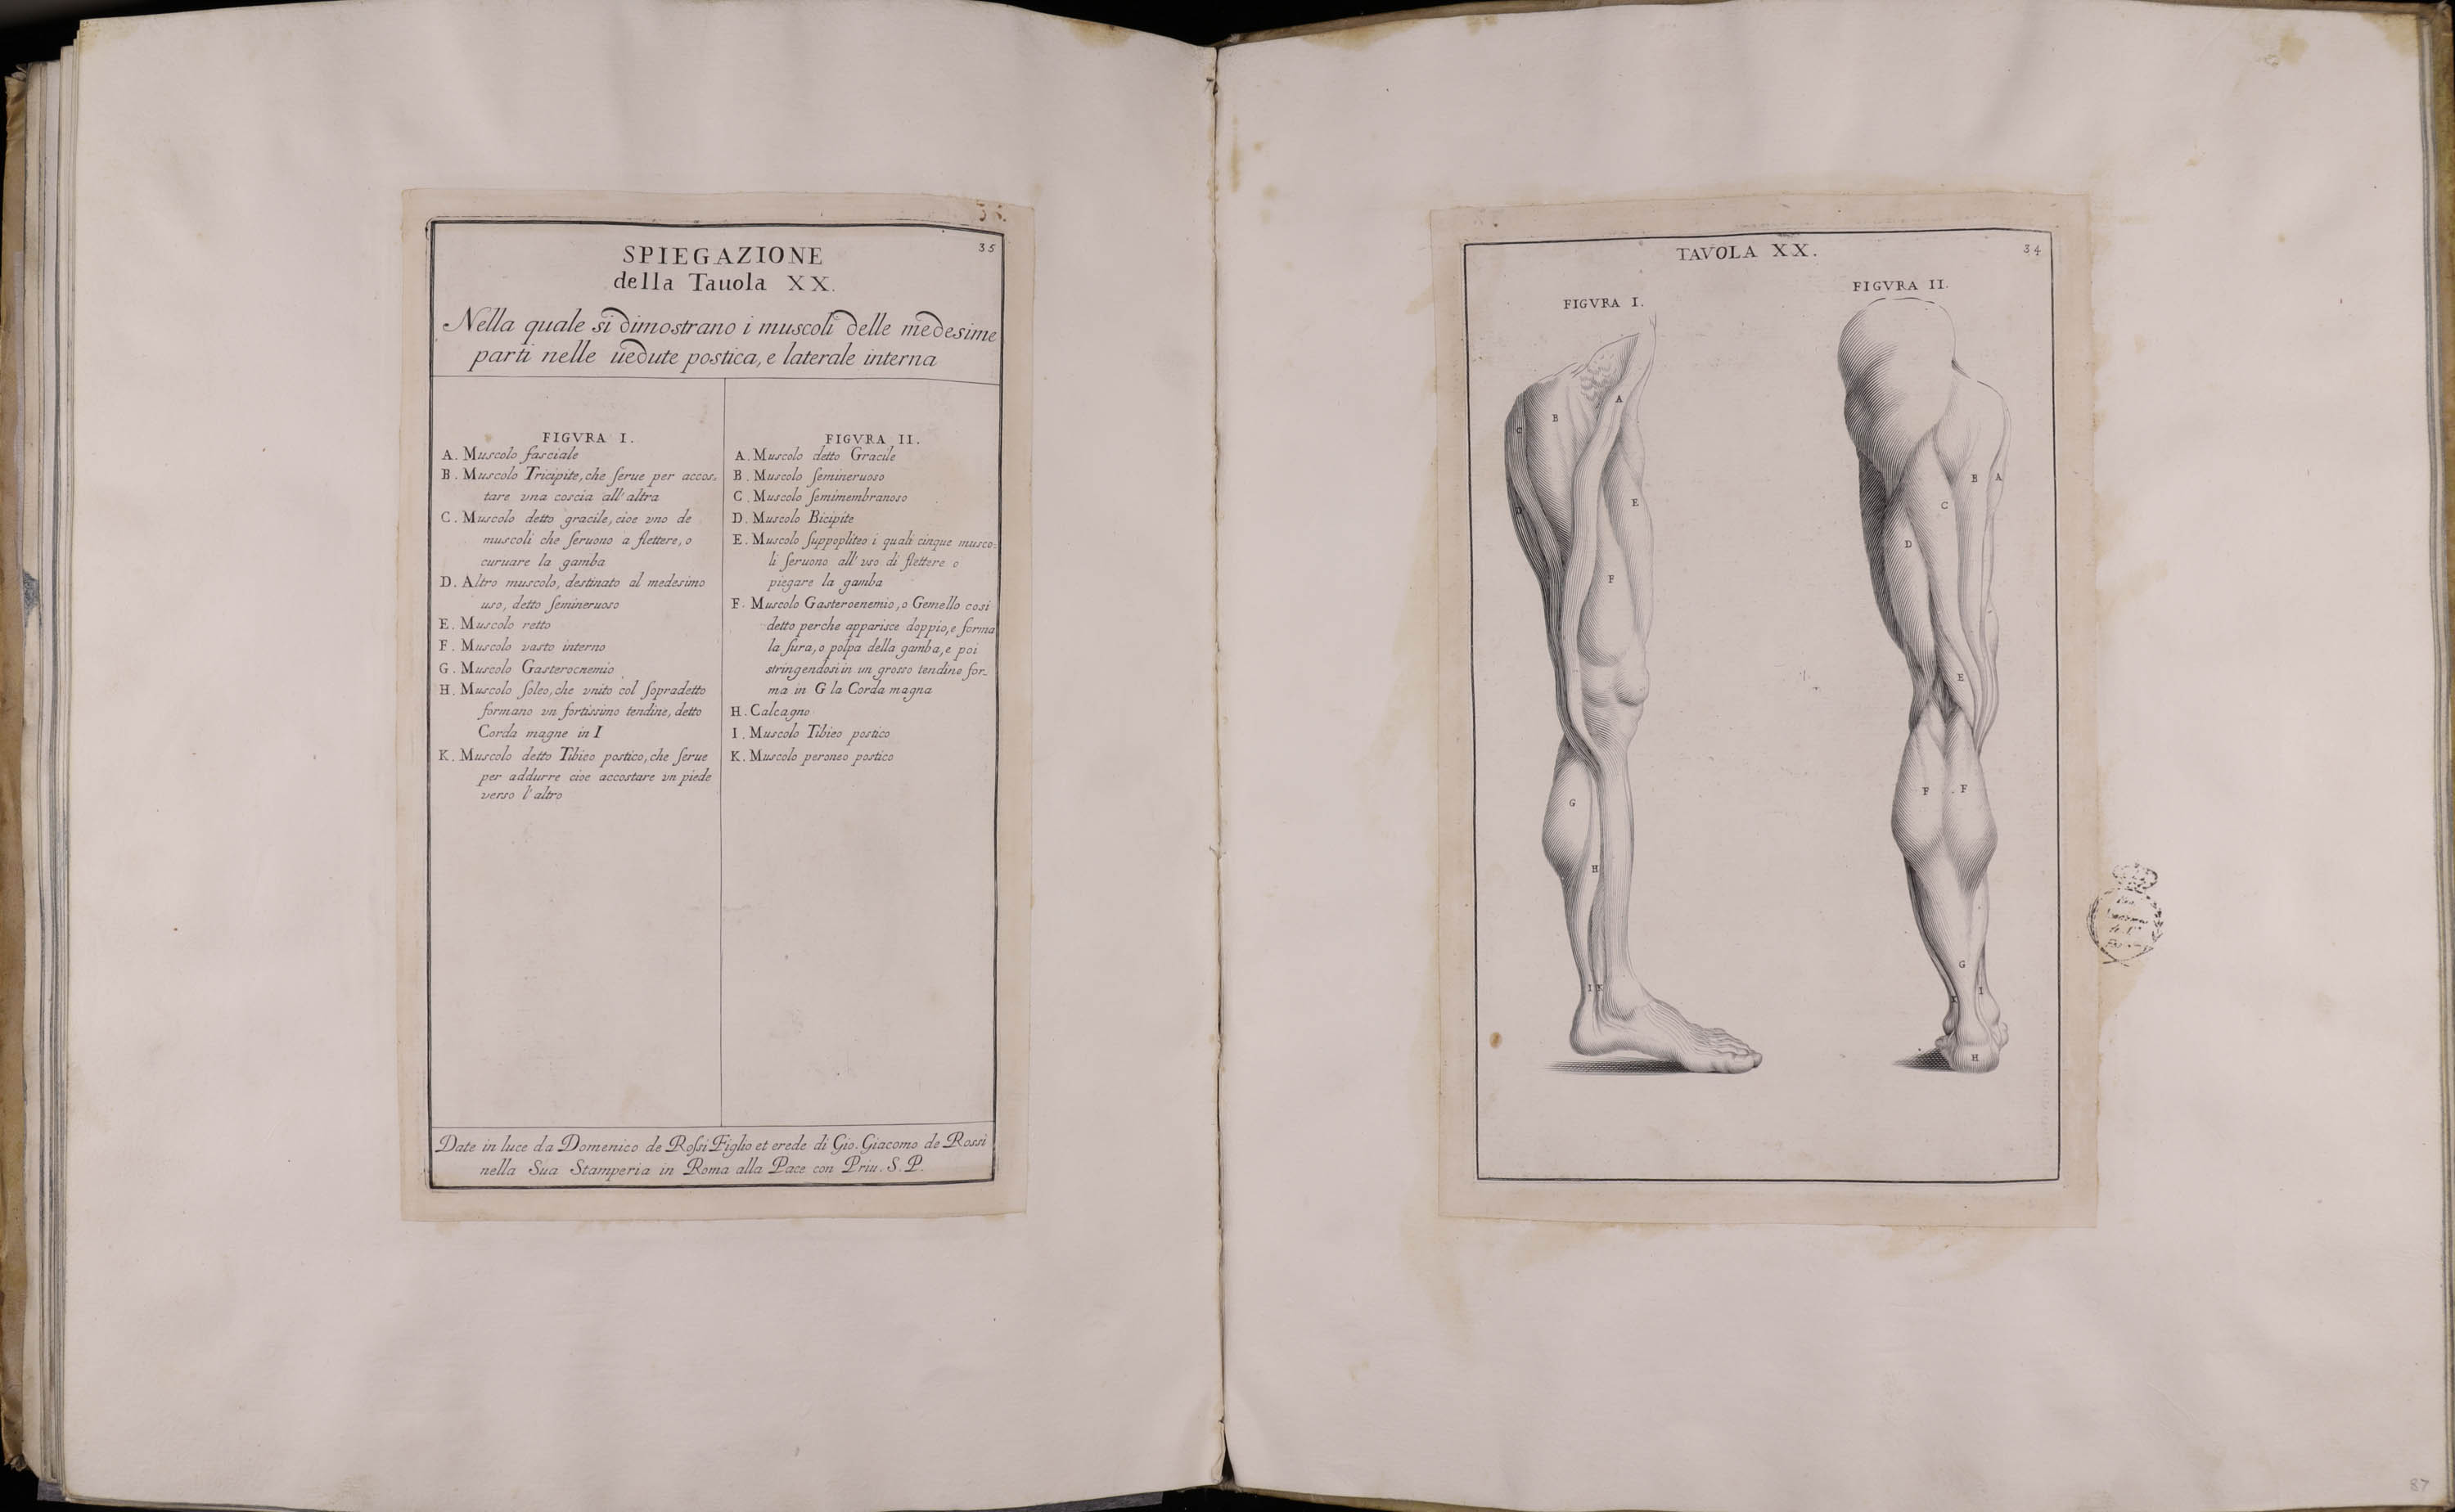 35
SPIEGAZIONE
della Tauola XX.
Nella quale si dimostrano i muscoli delle medesime
parti nelle uedute postica, e laterale interna
FIGVRA I.
A. Muscolo fasciale
B. Muscolo Tricipite, che serue per accos-
tare vna coscia all' altra
C. Muscolo detto gracile, cioe vno de
muscoli che seruono a flettere, o
curuare la gamba
D. Altro muscolo, destinato al medesimo
uso, detto semineruoso
E. Muscolo retto
F. Muscolo vasto interno
G. Muscolo Gasterocnemio
H. Muscolo soleo, che vnito col sopradetto
formano vn fortissimo tendine, detto
Corda magne in I
K. Muscolo detto Tibieo postico, che serue
per addurre cioe accostare vn piede
verso l' altro
FIGVRA II.
A. Muscolo detto Gracile
B. Muscolo semineruoso
C. Muscolo semimembranoso
D. Muscolo Bicipite
E. Muscolo suppopliteo i quali cinque musco-
li seruono all' vso di flettere o
piegare la gamba
F. Muscolo Gasteroenemio, o Gemello cosi
detto perche apparisce doppio, e forma
la sura, o polpa della gamba, e poi
stringendosi in un grosso tendine for-
ma in G la Corda magna
H. Calcagno
I. Muscolo Tibieo postico
K. Muscolo peroneo postico
Date in luce da Domenico de Rossi Figlio et erede di Gio. Giacomo de Rossi
nella Sua Stamperia in Roma alla Pace con Priu. S. P.
TAVOLA XX.
34
FIGVRA I.
A
B
C
E
D
F
G
H
I K
FIGVRA II.
B A
C
D
E
F F
G
I
K
H
87